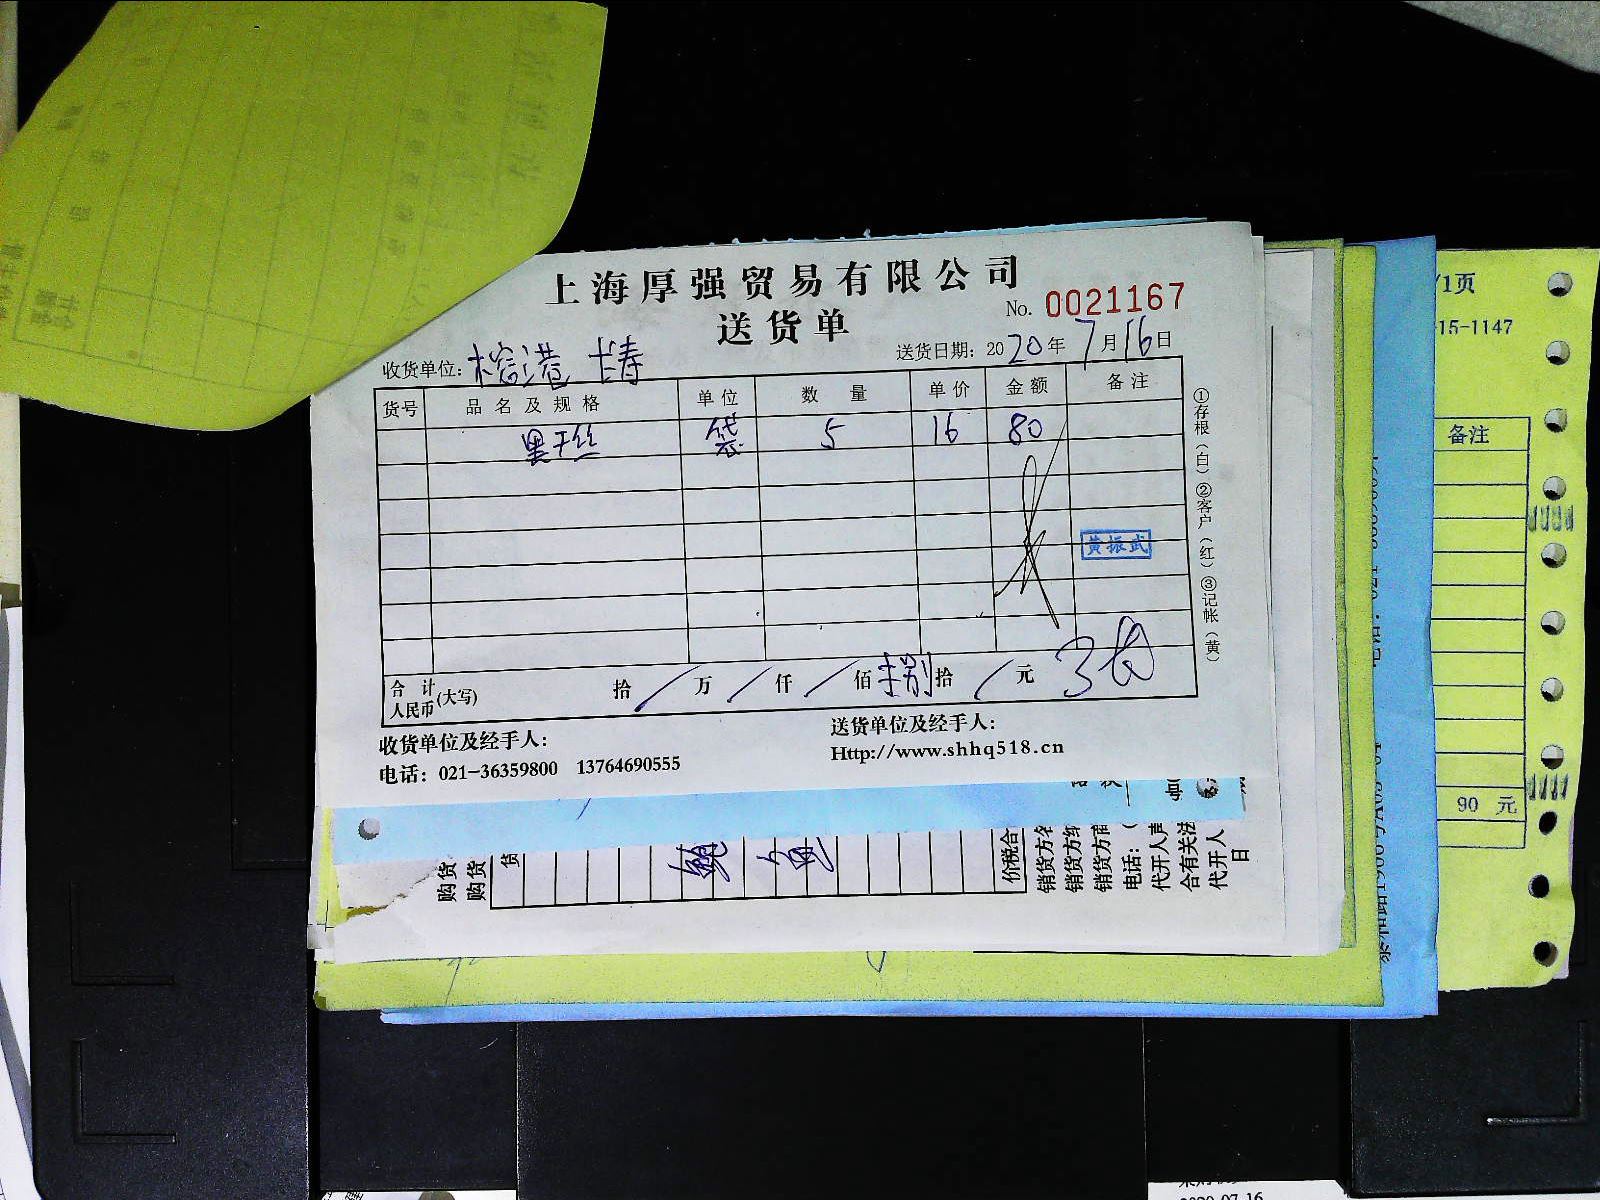 上海厚强贸易有限公司
No. 0021167
送货单
收货单位:榕港
送货日期: 2020年7月16日
货号 品名及规格 单位 数量 单价 金额 备注
黑干丝 袋 5 16 80
黄振武
合计人民币(大写) 拾/万/仟/佰捌拾/元
收货单位及经手人:
送货单位及经手人:
电话: 021-36359800 13764690555
Http://www.shhq518.cn
①存根(白)②客户(红)③记帐(黄)
/1页
15-1147
备注
90 元
购货
购货
货
价税合
销货方名
销货方纳
销货方商
电话:(
代开人声
含有关法
代开人
日
2020-07-16